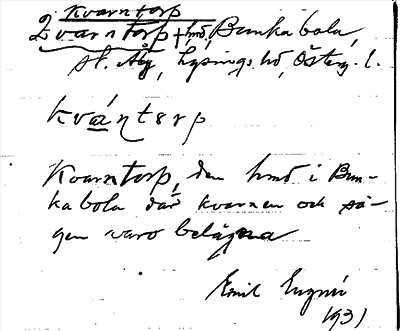 Kvarntorp
Qvarntorp, hmd, Bunkabola,
st. Åby, Lysings hd, Österg. l.
kvántǝrp
Kvarntorp, den hmd i Bun-
kabola där kvarnen och så-
gen varo belägna
Emil
1931